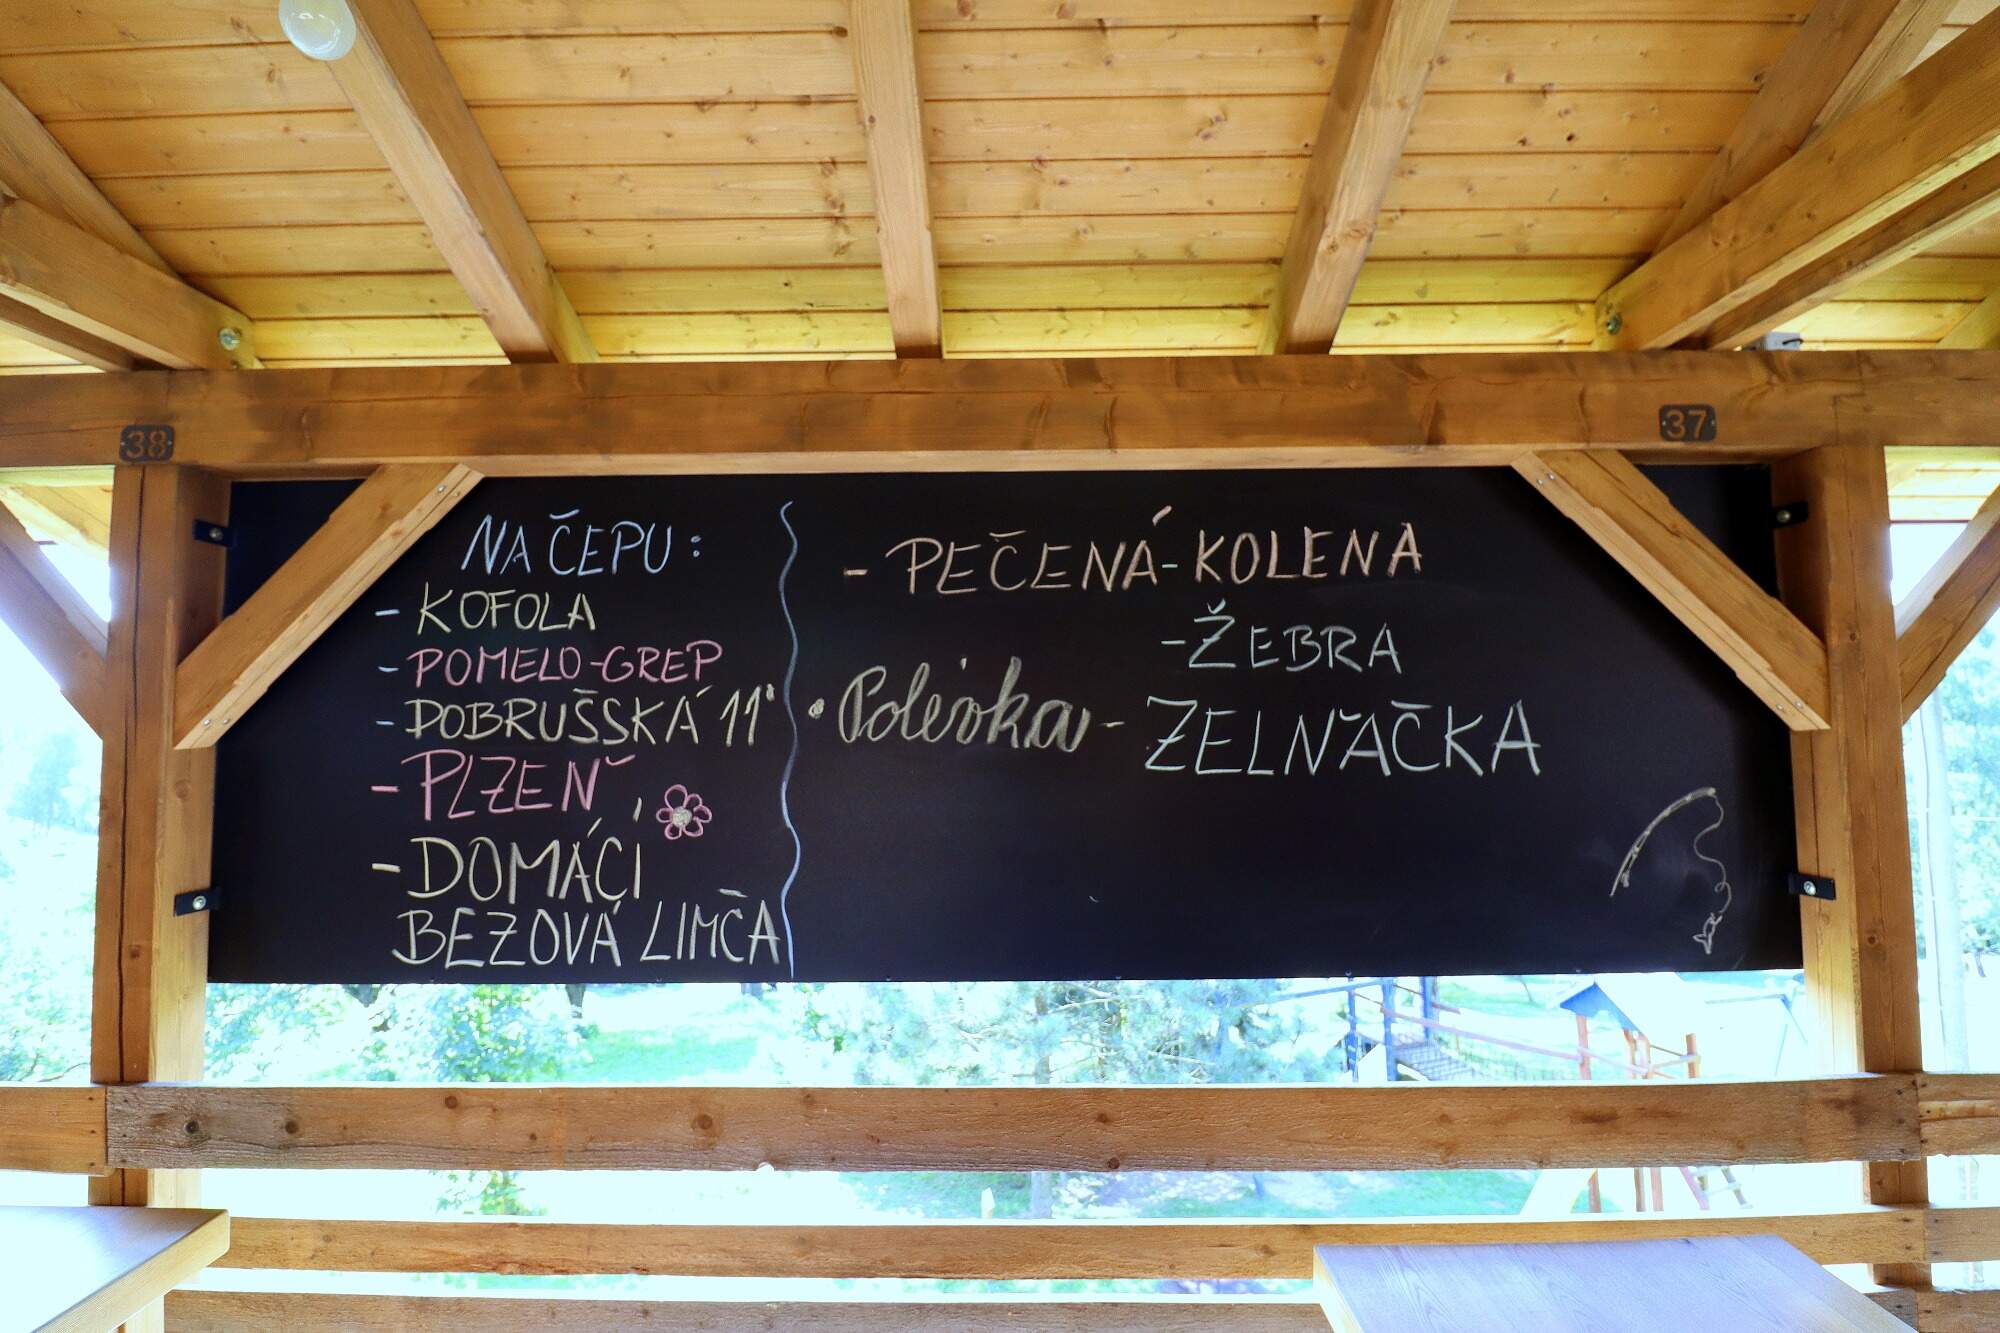 38
37
NA ČEPU:
- KOFOLA
- POMELO-GREP
- DOBRUŠSKÁ 11°
- PLZEŇ
- DOMÁCÍ
BEZOVÁ LIMČA
- PEČENÁ - KOLENA
- ŽEBRA
• Polévka - ZELŇAČKA